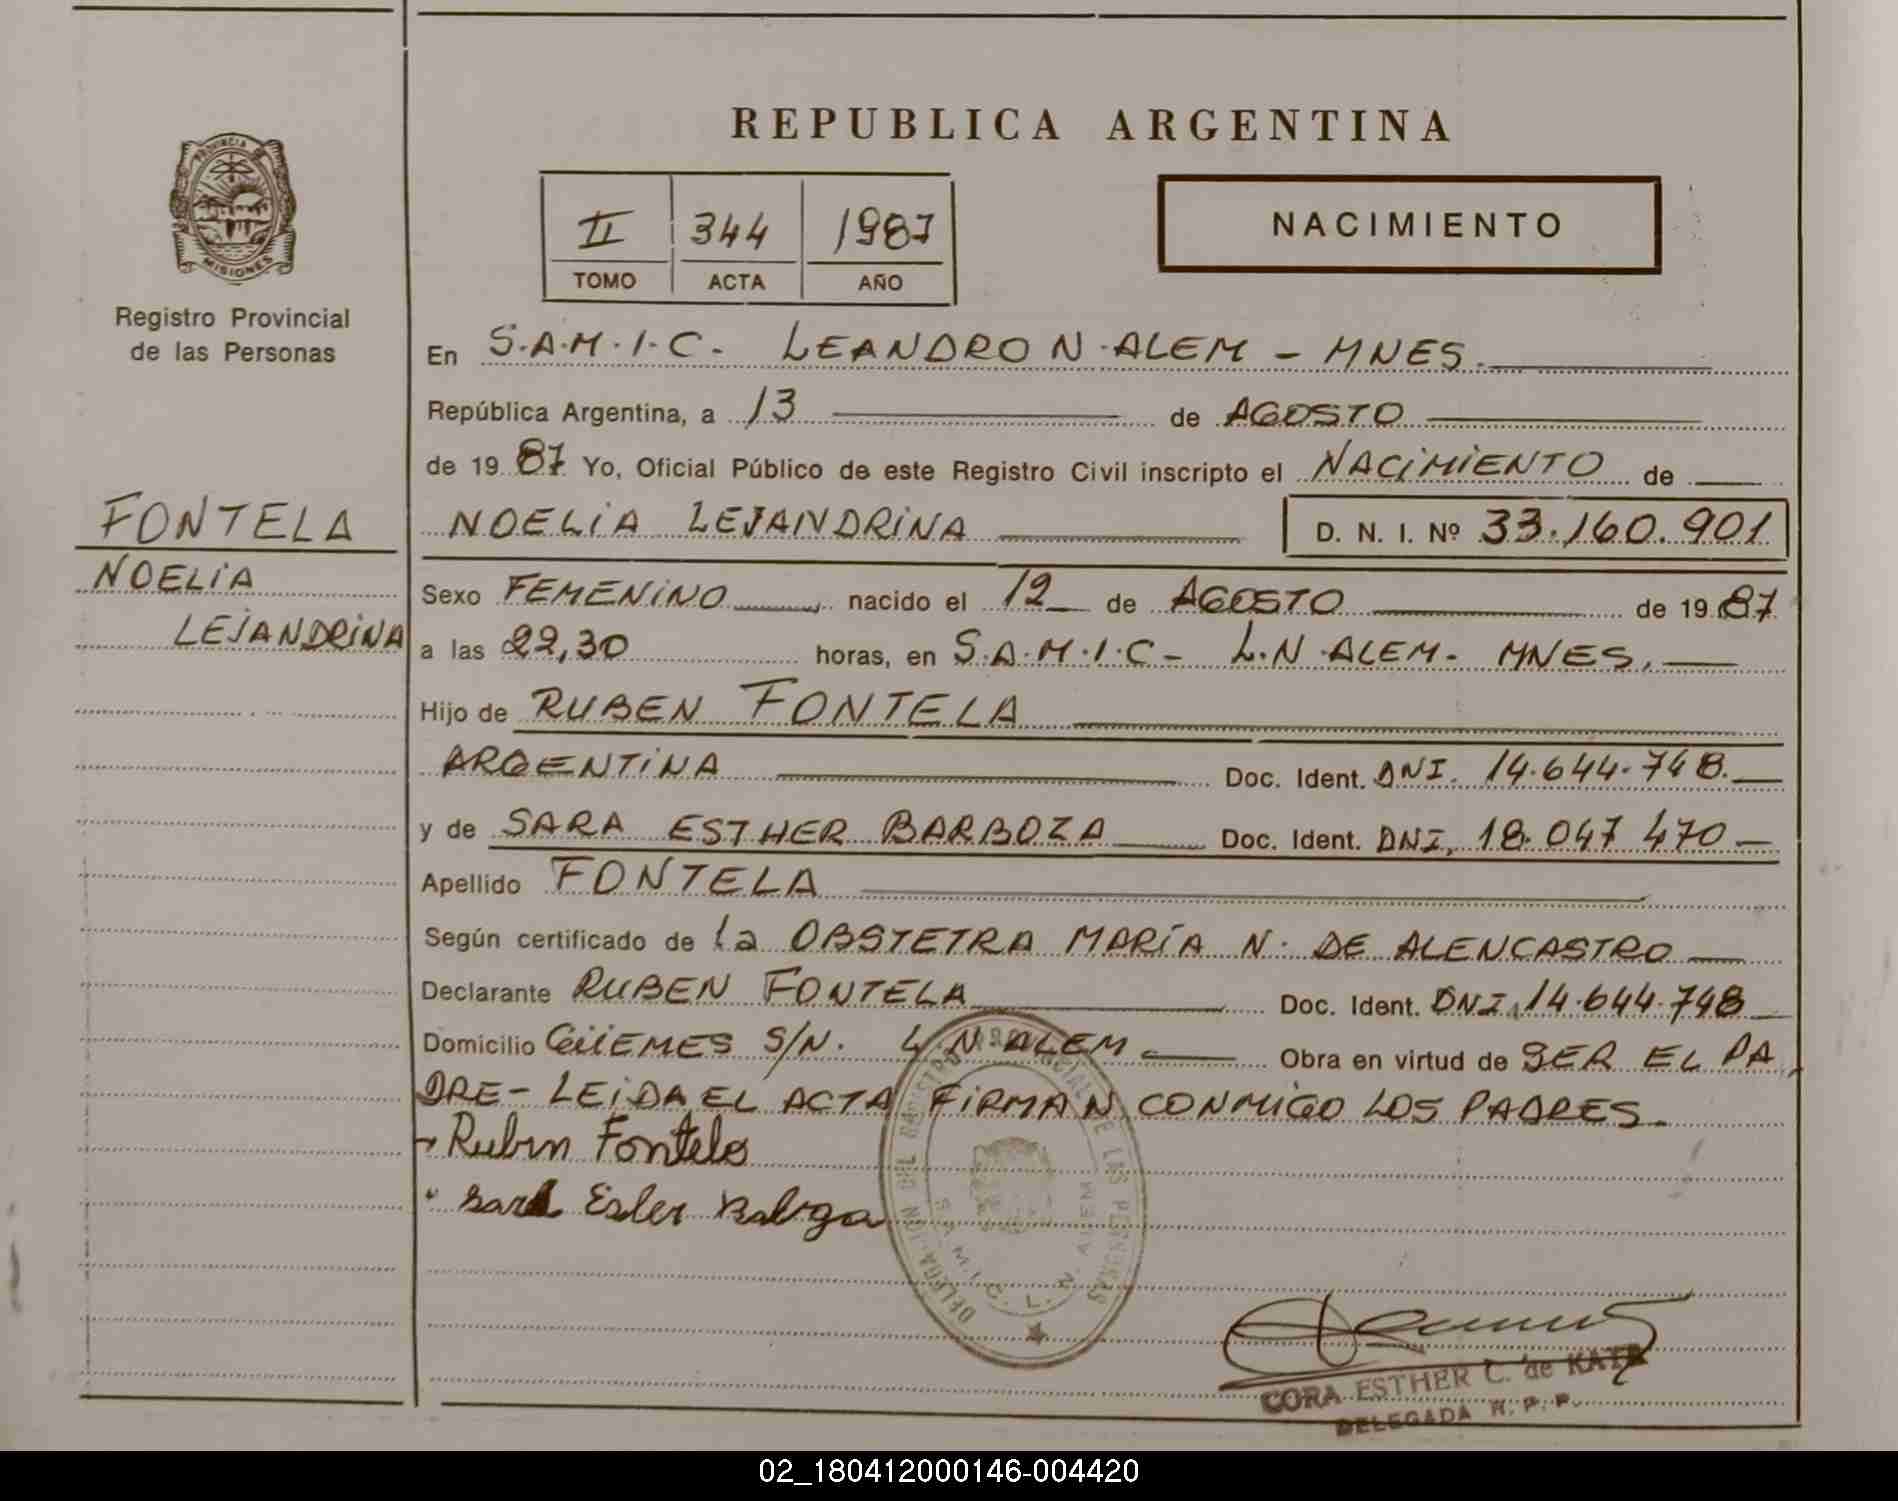 REPUBLICA ARGENTINA
PROVINCIA DE
MISIONES
Registro Provincial
de las Personas
II 344 1987
TOMO ACTA AÑO
NACIMIENTO
En S.A.M.I.C. LEANDRO N. ALEM - MNES.
República Argentina, a 13 de AGOSTO
de 1987 Yo, Oficial Público de este Registro Civil inscripto el NACIMIENTO de
NOELIA LEJANDRINA D. N. I. Nº 33.160.901
FONTELA
NOELIA
LEJANDRINA
Sexo FEMENINO nacido el 12 de AGOSTO de 1987
a las 22,30 horas, en S.A.M.I.C- L.N.ALEM- MNES.
Hijo de RUBEN FONTELA
ARGENTINA Doc. Ident. DNI. 14.644.748.
y de SARA ESTHER BARBOZA Doc. Ident. DNI, 18.047 470
Apellido FONTELA
Según certificado de la OBSTETRA MARÍA N. DE ALENCASTRO
Declarante RUBEN FONTELA Doc. Ident. DNI, 14.644.748
Domicilio GÜEMES S/N. L.N.ALEM Obra en virtud de SER EL PA
DRE- LEIDA EL ACTA FIRMAN CONMIGO LOS PADRES.
Rubin Fontela
Sara Esler
DELEGACION DEL REGISTRO PROVINCIAL DE LAS PERSONAS
S.A.M.I.C. L. N. ALEM
CORA ESTHER C. de
DELEGADA R.P.P.
02_180412000146-004420